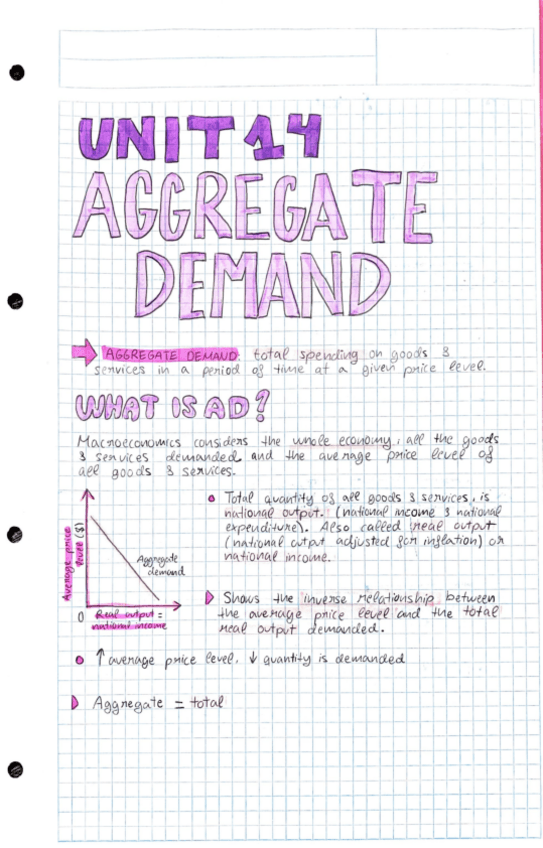 UNIT 14
AGGREGATE
DEMAND
AGGREGATE DEMAND: total spending on goods &
services in a period of time at a given price level.
WHAT IS AD?
Macroeconomics considers the whole economy, all the goods
& services demanded and the average price level of
all goods & services.
Average price
level ($)
Aggregate
demand
0
Real output =
national income
Total quantity of all goods & services, is
national output. (national income & national
expenditure). Also called real output
(national output adjusted for inflation) or
national income.
Shows the inverse relationship between
the average price level and the total
real output demanded.
↑ average price level, ↓ quantity is demanded
Aggregate = total